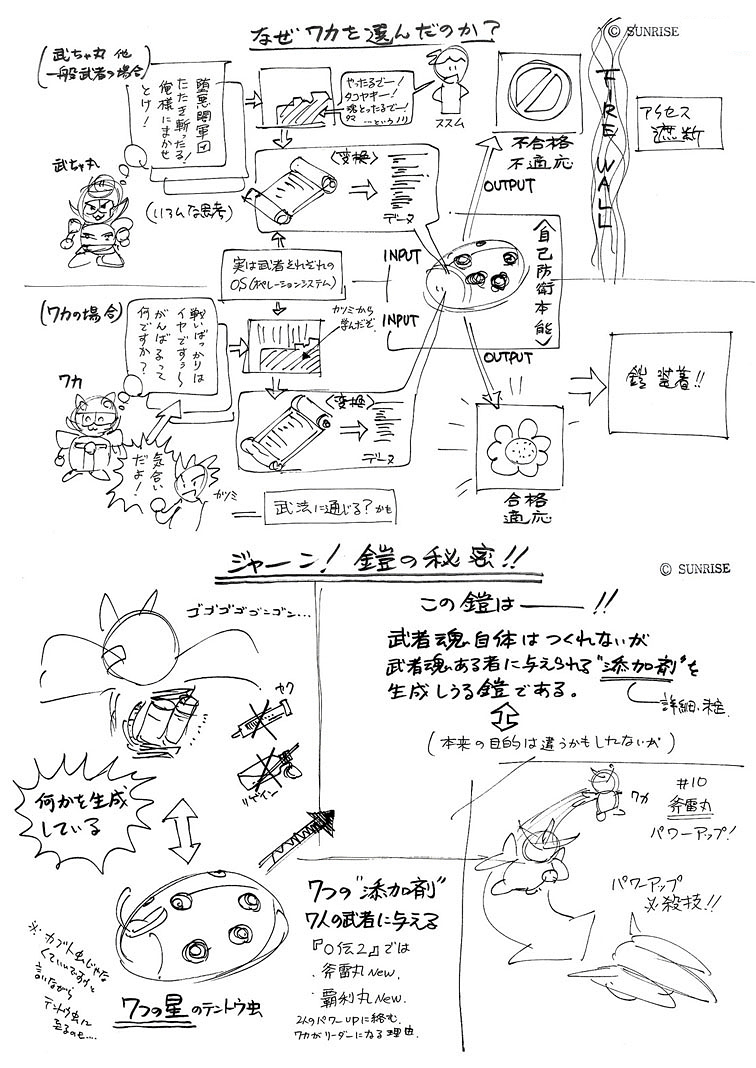 なぜワカを選んだのか?
© SUNRISE
(武ちゃ丸 他
一般武者の場合)
堕悪闇軍団
たたき斬ったる!
俺様にまかせ
とけ!
やったるでー!
タコヤキー!
魂とったるでー!
…という
ススム
武ちゃ丸
(いろんな思考)
〈変換〉
データ
不合格
不適応
OUTPUT
FIRE WALL
アクセス
遮断
実は武者それぞれの
OS(オペレーションシステム)
INPUT
INPUT
〈自己防衛本能〉
OUTPUT
(ワカの場合)
戦いばっかりは
イヤですぅ〜
がんばるって
何ですか?
カツミから
学んだぞ
ワカ
〈変換〉
データ
気合い
だよ!
カツミ
武法に通じる?かも
合格
適応
鎧 装着!!
ジャーン! 鎧の秘密!!
© SUNRISE
ゴゴゴゴゴンゴン…
ヤク
リゲイン
何かを生成
している
この鎧は――!!
武者魂自体はつくれないが
武者魂ある者に与えられる"添加剤"を
生成しうる鎧である。
詳細、未定
(本来の目的は違うかもしれないが)
ワカ
#10
斧雷丸
パワーアップ!
パワーアップ
必殺技!!
7つの"添加剤"
7人の武者に与える
『0伝2』では
・斧雷丸New.
・覇利丸New.
2人のパワーUPに絡む.
ワカがリーダーになる理由.
7つの星のテントウ虫
※カブト虫じゃな
くていいですけと
言いながら
テントウ虫に